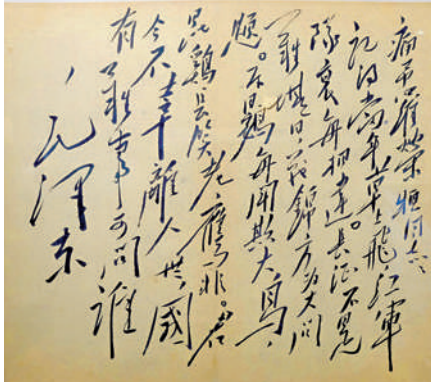 吊羅榮桓同志
記得當年草上飛紅軍
隊裏每相違。長征不是
難堪日,戰錦方為大問
題。斥鷃每聞欺大鳥、
昆鷄長笑老鷹非。君
今不幸離人世國
有難事可問誰
毛澤東